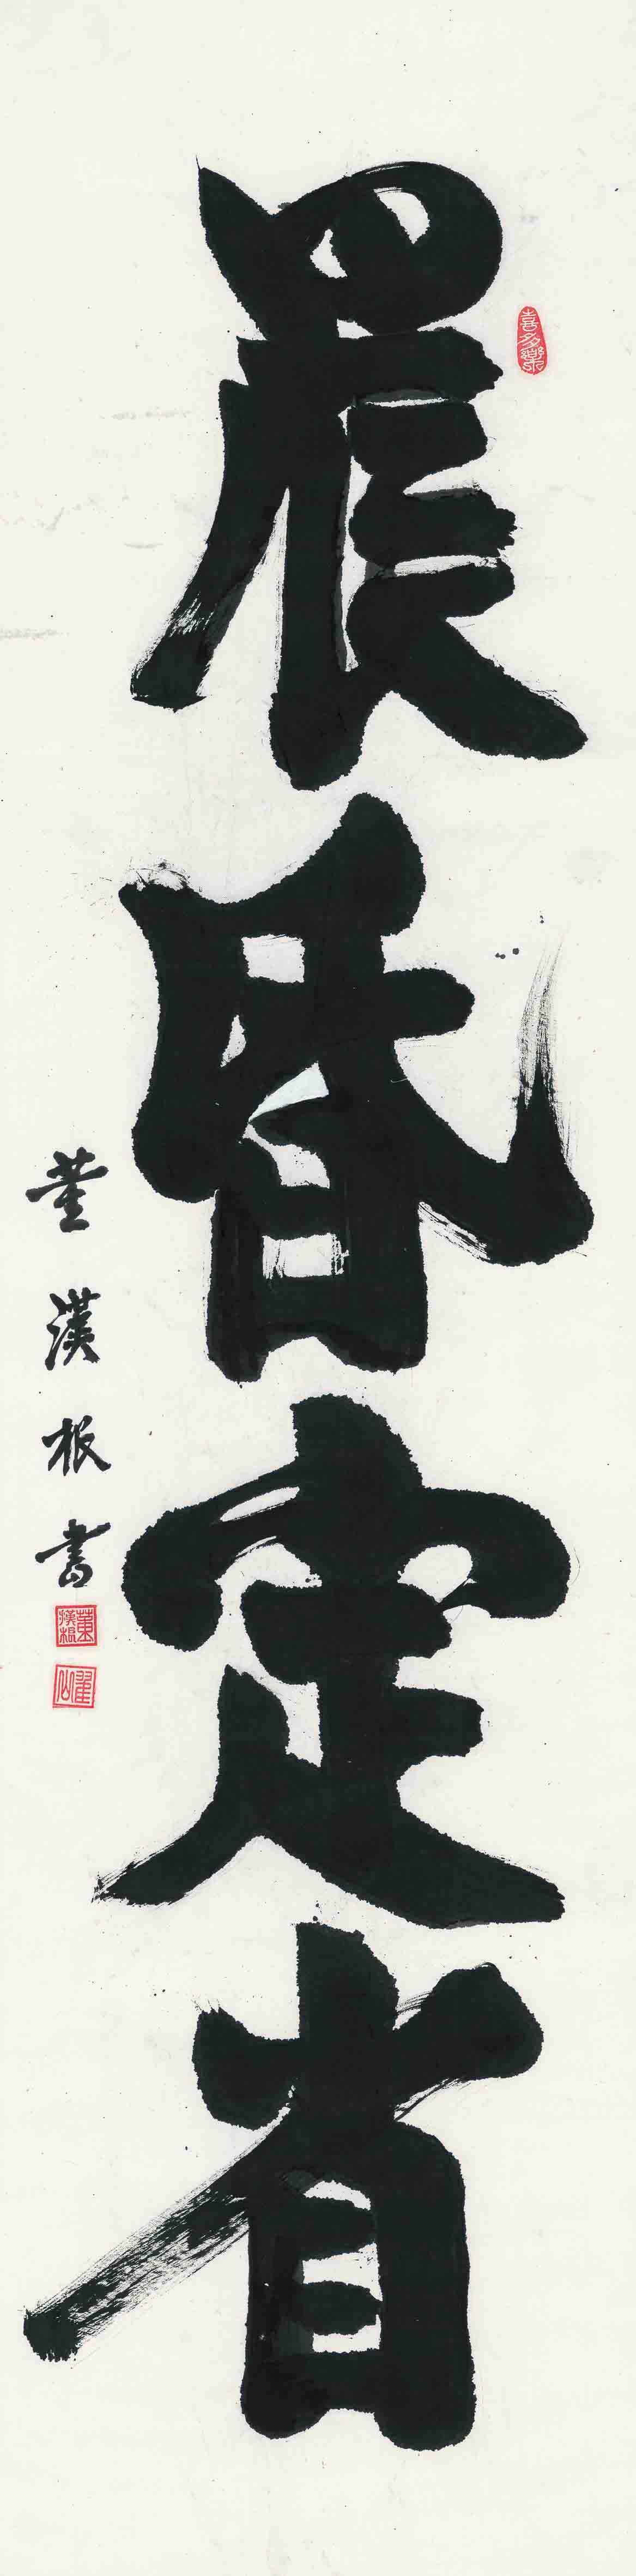 晨昏定省
喜多樂
董漢根書
董漢根